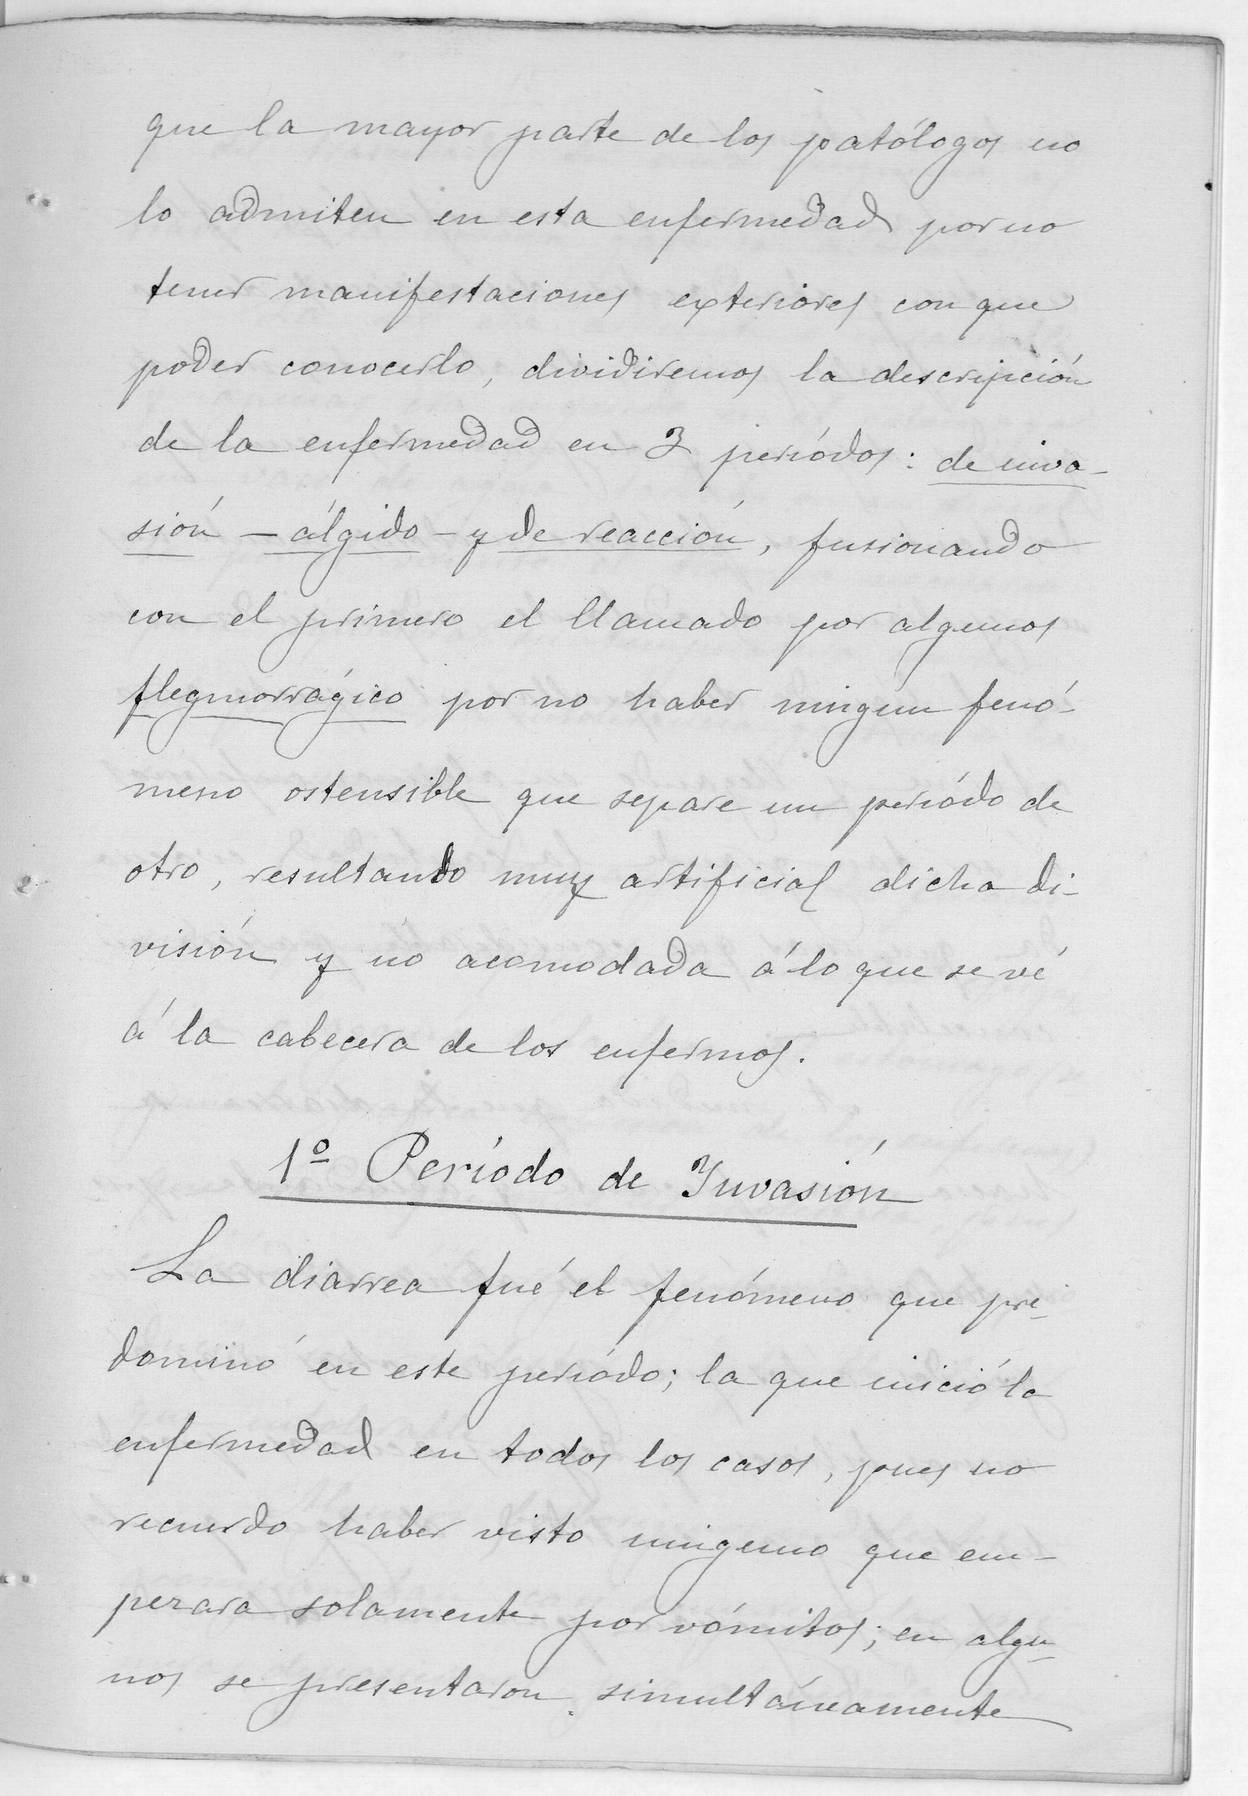 que la mayor parte de los patólogos no
lo admiten en esta enfermedad por no
tener manifestaciones exteriores con que
poder conocerlo, dividiremos la descripción
de la enfermedad en 3 periódos: de inva-
sión - álgido - y de reacción, fusionando
con el primero el llamado por algunos
flegmorrágico por no haber ningun fenó-
meno ostensible que separe un periódo de
otro, resultando muy artificial dicha di-
visión y no acomodada á lo que se vé
á la cabecera de los enfermos.
1º Período de Invasión
La diarrea fué el fenómeno que pre-
dominó en este periódo; la que inició la
enfermedad en todos los casos, pues no
recuerdo haber visto ninguno que em-
pezara solamente por vómitos; en algu-
nos se presentaron simultáneamente